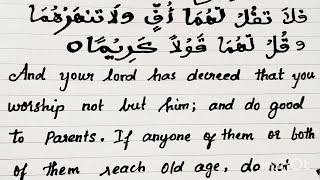 فَلَا تَقُلْ لَهُمَا أُفٍّ وَلَا تَنْهَرْهُمَا
وَقُلْ لَهُمَا قَوْلًا كَرِيْمًا ٥
And your lord has decreed that you
worship not but him; and do good
to Parents. If anyone of them or both
of them reach old age, do not